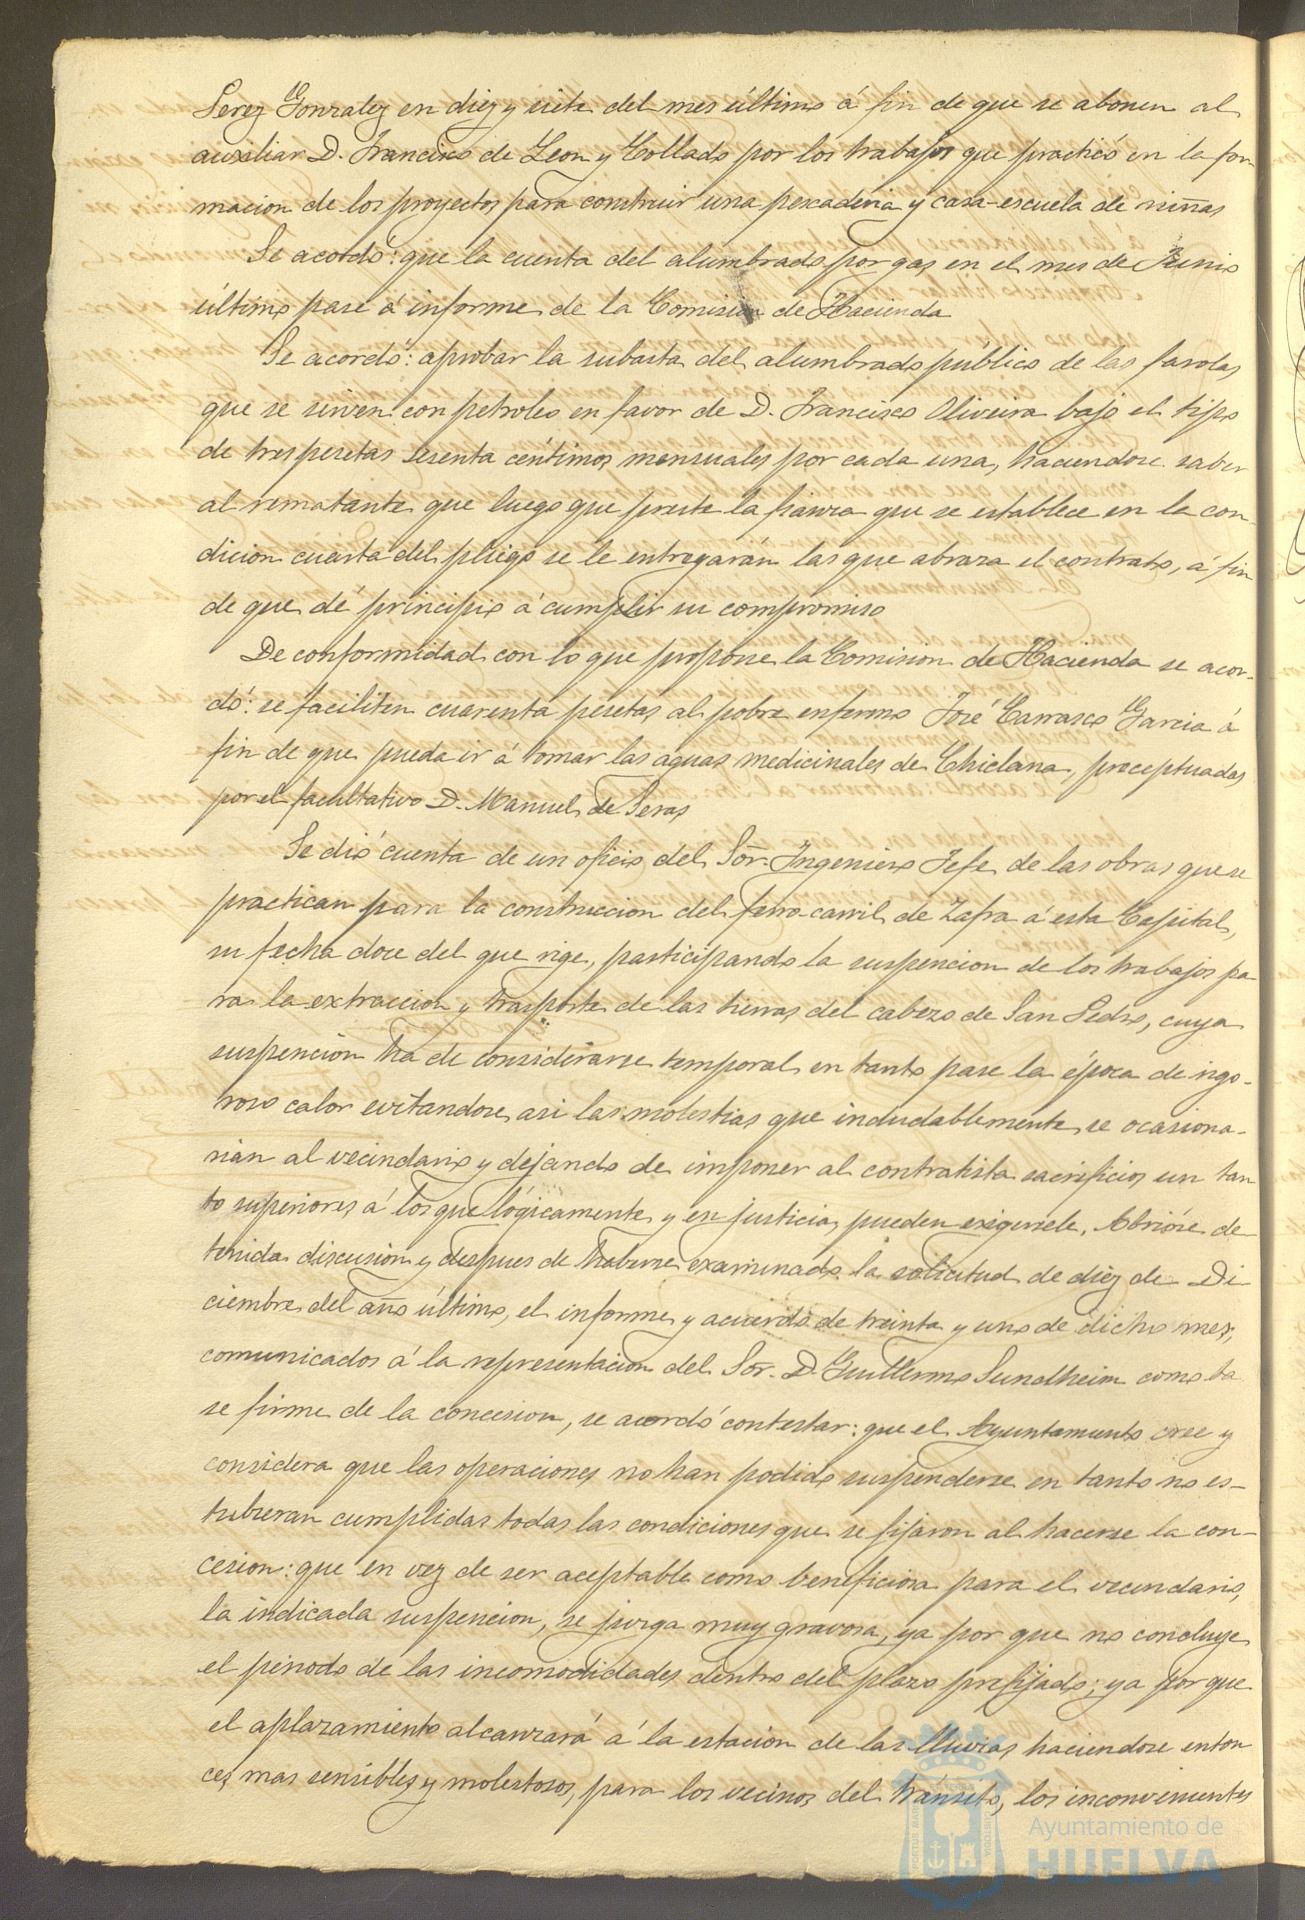 Perez Gonzalez en diez y siete del mes último á fin de que se abonen al
auxiliar D. Francisco de Leon y Collado por los trabajos que practicó en la for-
macion de los proyectos para construir una pescaderia y casa-escuela de niñas
Se acordó: que la cuenta del alumbrado por gas en el mes de Junio
último pase á informe de la Comision de Hacienda
Se acordó: aprobar la subasta del alumbrado público de las farolas
que se sirven con petroleo en favor de D. Francisco Oliveira bajo el tipo
de tres pesetas sesenta céntimos mensuales por cada una, haciendose saber
al rematante que luego que preste la fianza que se establece en la con-
dicion cuarta del pliego se le entregarán las que abraza el contrato, á fin
de que dé principio á cumplir su compromiso
De conformidad con lo que propone la Comision de Hacienda se acor-
dó: se faciliten cuarenta pesetas al pobre enfermo José Carrasco Garcia á
fin de que pueda ir á tomar las aguas medicinales de Chiclana, preceptuadas
por el facultativo D. Manuel de Seras
Se dió cuenta de un oficio del Sōr. Ingeniero Jefe de las obras que se
practican para la construccion del ferro-carril de Zafra á esta Capital,
su fecha doce del que rige, participando la suspencion de los trabajos pa-
ra la extraccion y trasporte de las tierras del cabezo de San Pedro, cuya
suspencion ha de considerarse temporal en tanto pase la época de rigo-
roso calor evitandose asi las molestias que indudablemente se ocasiona-
rian al vecindario y dejando de imponer al contratista sacrificios un tan
to superiores á los que lógicamente y en justicia pueden exigirsele. Abrióse de-
tenida discusion y despues de haberse examinado la solicitud de diez de Di
ciembre del año último, el informe y acuerdo de treinta y uno de dicho mes,
comunicados á la representacion del Sōr. D. Guillermo Sundheim como ba
se firme de la concesion, se acordó contestar: que el Ayuntamiento cree y
considera que las operaciones no han podido suspenderse en tanto no es-
tubieran cumplidas todas las condiciones que se fijaron al hacerse la con-
cesion: que en vez de ser aceptable como beneficiosa para el vecindario,
la indicada suspencion, se juzga muy gravosa, ya por que no concluye
el periodo de las incomodidades dentro del plazo prefijado; ya por que
el aplazamiento alcanzará á la estacion de las lluvias haciendose enton
ces mas sensibles y molestosos, para los vecinos del tránsito, los inconvenientes
Ayuntamiento de
HUELVA